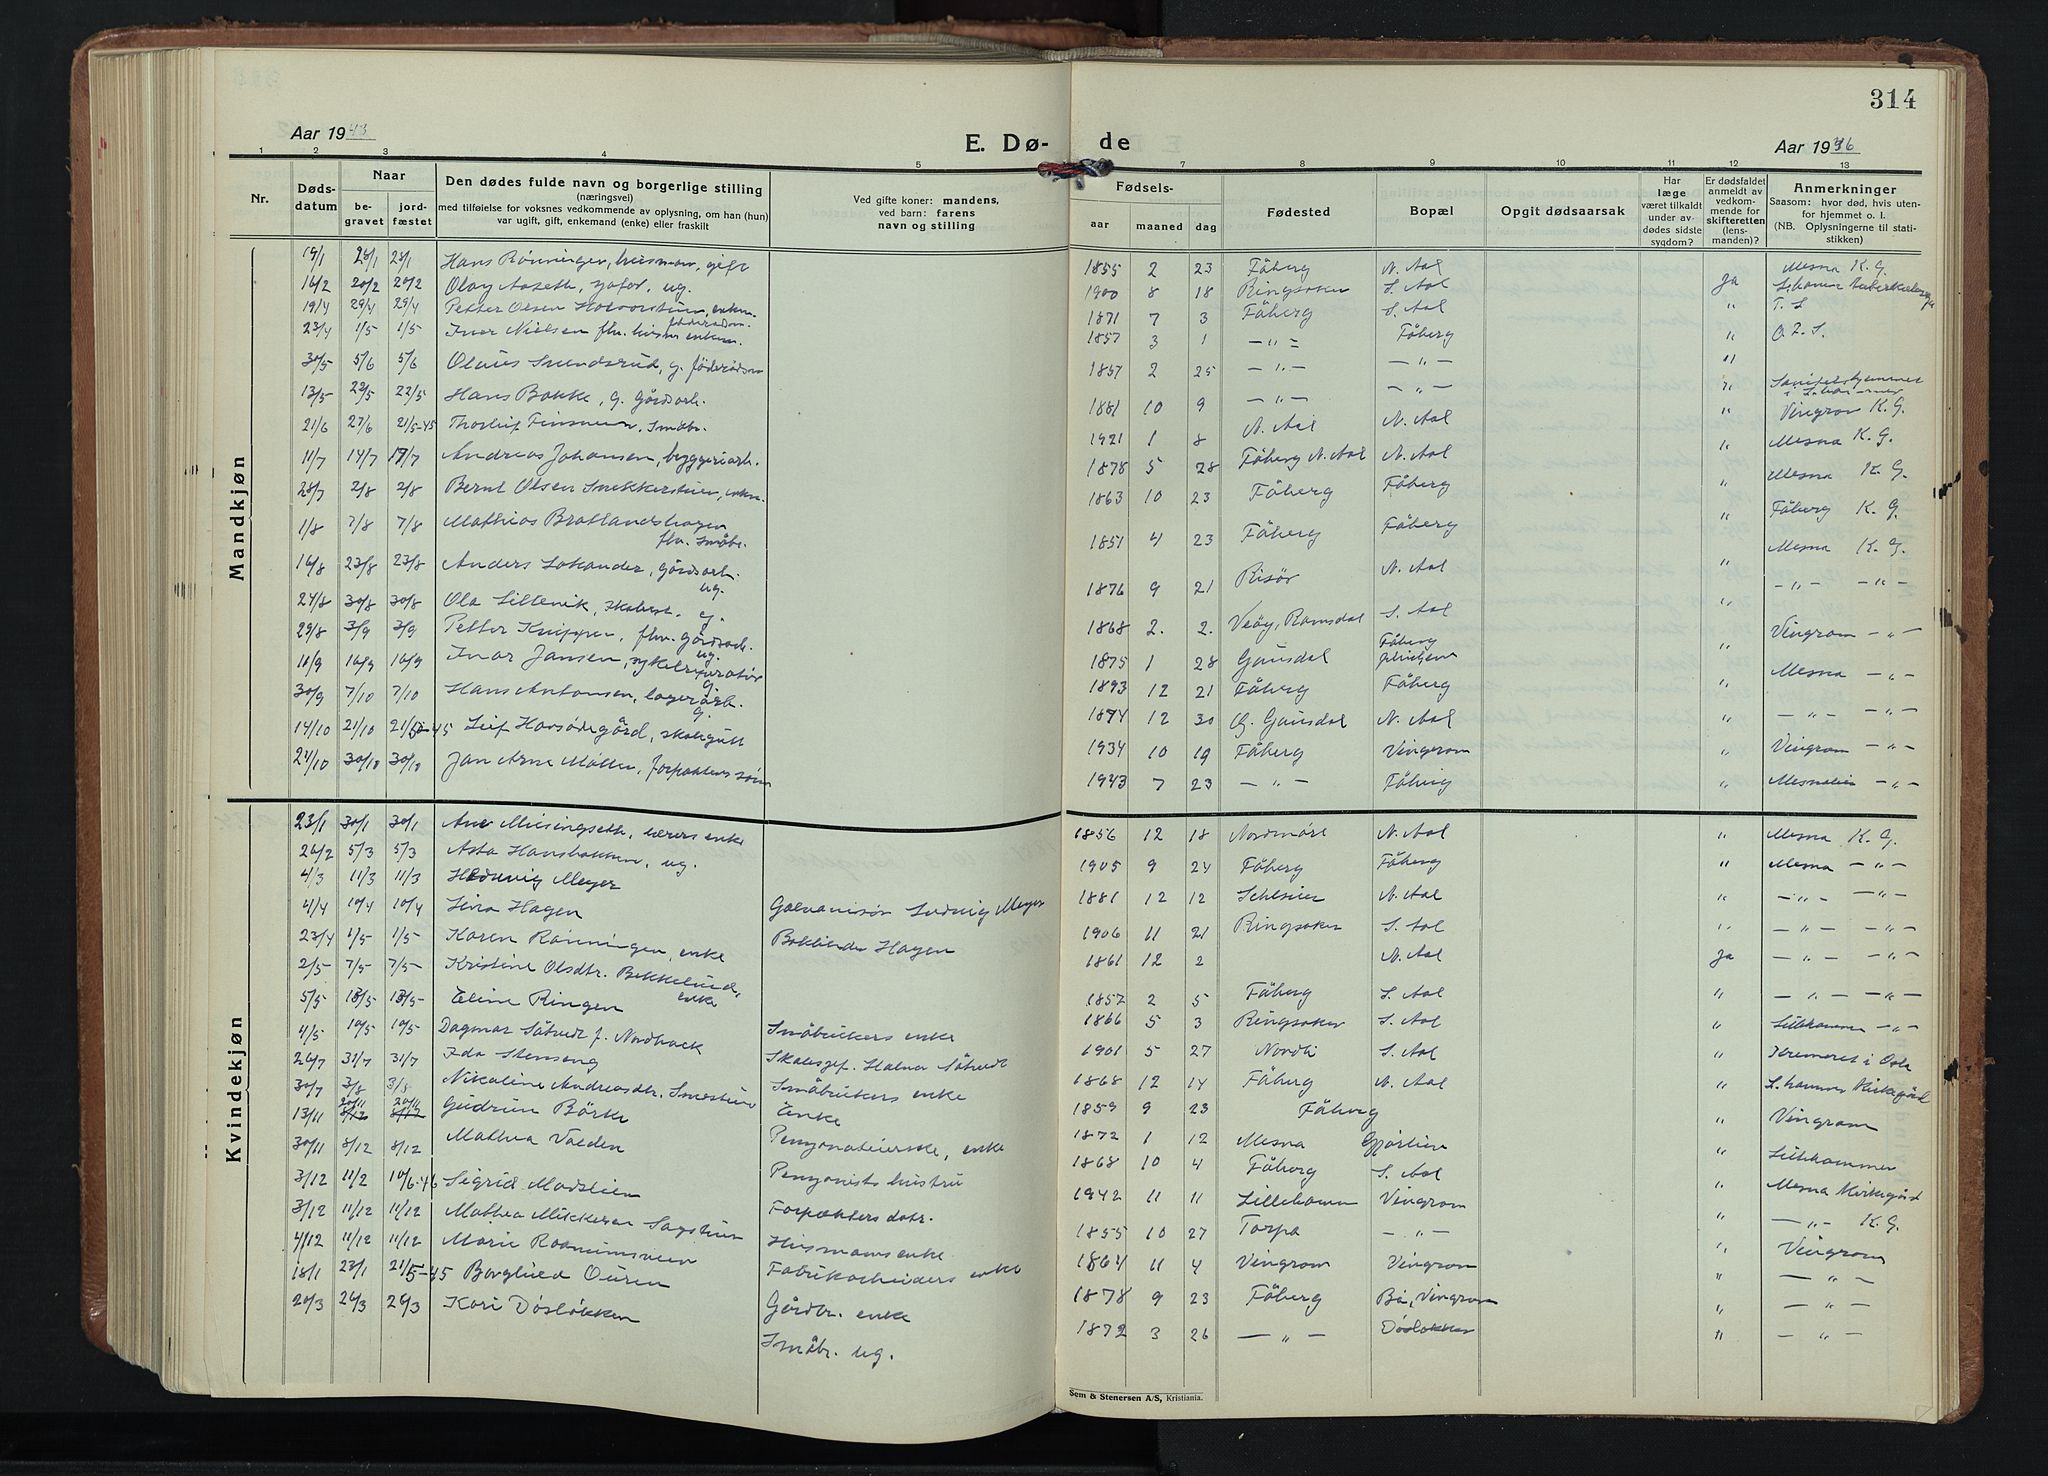 314
Aar 1943
E. Dø-
de
Aar 1946
1 2 3 4 5 7 8 9 10 11 12 13
Nr.
Døds-
datum
Naar
be-
gravet
jord-
fæstet
Den dødes fulde navn og borgerlige stilling
(næringsvei)
med tilføielse for voksnes vedkommende av oplysning, om han (hun)
var ugift, gift, enkemand (enke) eller fraskilt
Ved gifte koner: mandens,
ved barn: farens
navn og stilling
Fødsels-
aar
maaned
dag
Fødested
Bopæl
Opgit dødsaarsak
Har
læge
været tilkaldt
under av-
dødes sidste
sygdom?
Er dødsfaldet
anmeldt av
vedkom-
mende for
skifteretten
(lens-
manden)?
Anmerkninger
Saasom: hvor død, hvis uten-
for hjemmet o. l.
(NB. Oplysningerne til stati-
stikken)
Mandkjøn
19/1 28/1 28/1 Hans Rønningen, husmann, gift 1855 2 23 Fåberg N. Aal Mesna K. G.
16/2 20/2 20/2 Olav Aaseth, ug. 1900 8 18 Ringsaker S. Aal Ja
19/4 29/4 29/4 Petter Olsen 1871 7 3 Fåberg S. Aal " T. S
23/4 1/5 1/5 Iver Nielsen fhv. 1857 3 1 — " — Fåberg " O. L. S.
30/5 5/6 5/6 Olaus Svendsrud, g. føderådsm 1857 2 25 — " — — " — "
13/5 22/5 22/5 Hans Bakke, g. gårdsarb. 1881 10 9 — " — — " — "
21/6 27/6 21/5-45 Thorleif Finsveen, Småbr. 1921 1 8 N. Aal N. Aal " Vingrom K. G.
11/7 14/7 17/7 Andreas Johansen, bryggeriarb. 1878 5 28 Fåberg N. Aal N. Aal " Mesna K. G.
28/7 2/8 2/8 Bernt Olsen Snekkerstuen, enkm. 1863 10 23 Fåberg Fåberg " Mesna K. G.
1/8 7/8 7/8 Mathias Bratlandshagen
fhv. småbr. 1851 4 23 Fåberg Fåberg " Fåberg K. G.
16/8 23/8 23/8 Anders Sakander, gårdsarb.
ug. 1876 9 21 Risør N. Aal " Mesna K. G.
24/8 30/8 30/8 Ola Sillevik, skobest. g. 1868 2. 2. Veøy, Romsdal S. Aal " — " — — " —
29/8 3/9 3/9 Petter Knippen, fhv. gårdsarb.
ug. 1875 1 28 Gausdal Fåberg
" Vingrom — " —
10/9 16/9 16/9 Ivar Jansen, sykelreparatør
g. 1893 12 21 Fåberg Fåberg " Mesna — " —
30/9 7/10 7/10 Hans Antonsen, lagerarb.
g. 1874 12 30 Ø. Gausdal N. Aal " — " — — " —
14/10 21/10 21/5-45 Leif Havsødegård, skolegutt 1934 10 19 Fåberg Vingrom " Vingrom — " —
24/10 30/10 30/10 Jan Arne Møller, forpakters sønn 1943 7 23 — " — Fåberg " Mesnalien — " —
Kvindekjøn
23/1 30/1 30/1 Ane Misingseth, lærers enke 1856 12 18 Nordmøre N. Aal " Mesna K. G.
26/2 5/3 5/3 Asta Hansbakken, ug. 1905 9 24 Fåberg Fåberg " Mesna — " —
4/3 11/3 11/3 Hedvig Meyer Galvanisør Ludvig Meyer 1881 12 12 Schlesien N. Aal " — " — — " —
4/4 10/4 10/4 Jina Hagen Bokbinder Hagen 1906 11 21 Ringsaker S. Aal " — " — — " —
23/4 1/5 1/5 Karen Rønningen, enke 1861 12 2 N. Aal Ja — " — — " —
2/5 7/5 7/5 Kristine Olsdtr. Bekkelund,
enke 1857 2 5 Fåberg S. Aal " — " — — " —
5/5 13/5 13/5 Eline Ringen Småbrukers enke 1866 5 3 Ringsaker S. Aal " Lillehammer — " —
4/5 10/5 10/5 Dagmar Såtvedt f. Nordback Skolesjef. Halvor Såtvedt 1901 5 27 Nordli S. Aal " Kremeret i Oslo
26/7 31/7 31/7 Ida Stenseng Småbrukers enke 1868 12 14 Fåberg N. Aal " L.hammer Kirkegård
30/7 3/8 3/8 Nikoline Andreasdtr. Smestuen Enke 1859 9 23 Fåberg " Vingrom
20/11 20/11
13/11 8/12 8/12 Gudrun Børke Pensjonateierske, enke 1872 1 12 Mesna Gjørlien " Lillehammer
30/11 8/12 8/12 Mathea Vaeden Pensjonists hustru 1868 10 4 Fåberg S. Aal " Mesna Kirkegård
3/12 11/2 10/6-46 Sigrid Madslien Forpakters datr. 1942 11 11 Lillehamm Vingrom " — " — K. G.
3/12 11/12 11/12 Mathea Mikkelsen Sagstuen Husmanns enke 1855 10 27 Torpa — " — " Vingrom
4/12 11/12 11/12 Marie Roanimsveen Fabrikarbeiders enke 1864 11 4 Vingrom Vingrom " — " —
18/1 23/1 21/5-45 Borghild Ouren Gårdbr. enke 1878 9 23 Fåberg Bø, Vingrom " — " —
20/3 26/3 26/3 Kari Døsløkken Småbr. ug. 1872 3 26 — " — Døsløkken " — " —
Sem & Stenersen A/S, Kristiania.